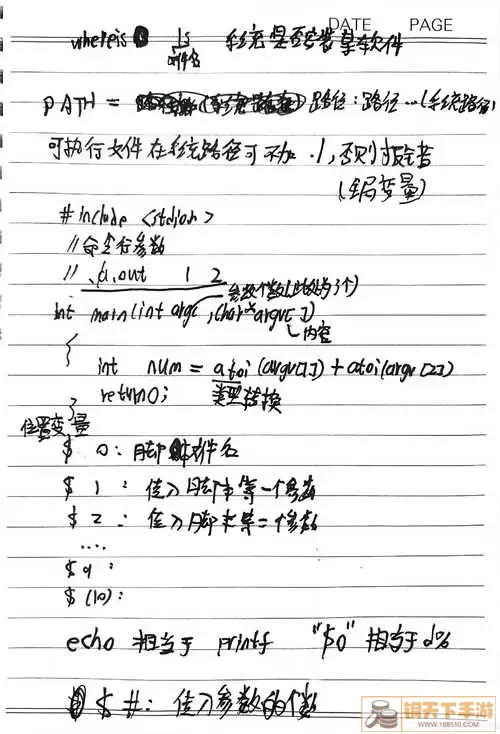 DATE PAGE
whereis ls 系统是否安装某软件
文件名
PATH = 路径:路径...(系统路径)
可执行文件在系统路径可不加 ./,否则报错
(全局变量)
#include <stdion>
//命令行参数
// ./a.out 1 2
参数个数(此处为3个)
int main(int argc, char* argv[])
内容
{
int num = atoi(argv[1]) + atoi(argv[2])
return 0; 类型转换
}
位置变量
$ 0: 脚本文件名
$ 1: 传入脚本第一个参数
$ 2: 传入脚本第二个参数
....
$ 9:
$ (10):
echo 相当于 printf "$0" 相当于 d%
$ #: 传入参数的个数
钢天下手游
www.168510.com